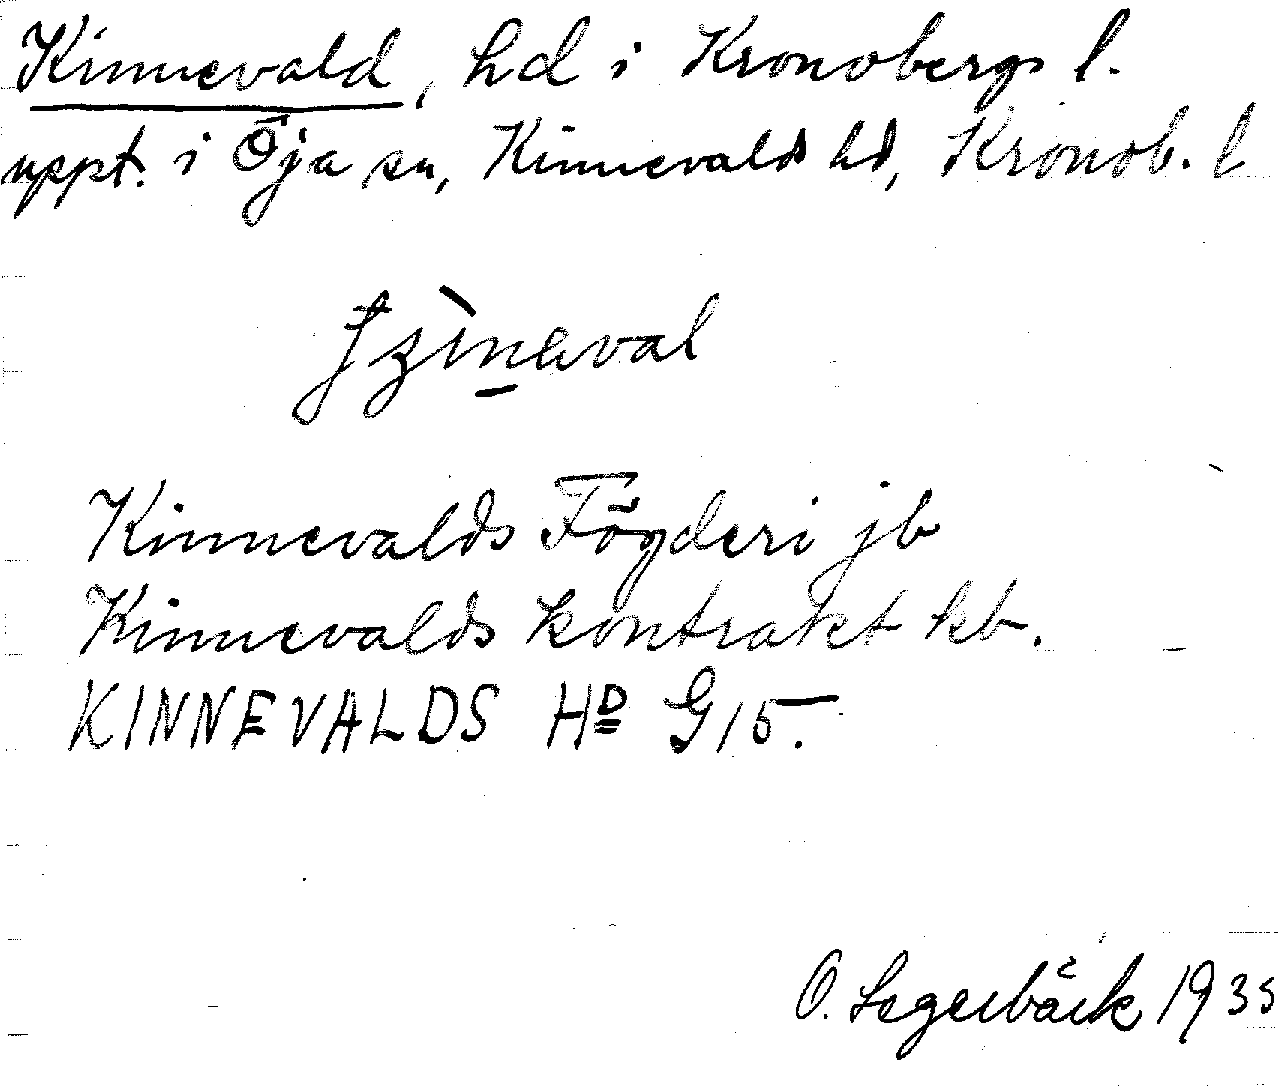 Kinnevald, hd i Kronobergs l.
uppt. i Öja sn, Kinnevalds hd, Kronob. l
Kinnevalds Fögderi jb
Kinnevalds kontrakt kb.
KINNEVALDS HD G15.
O. Segerbäck 1935